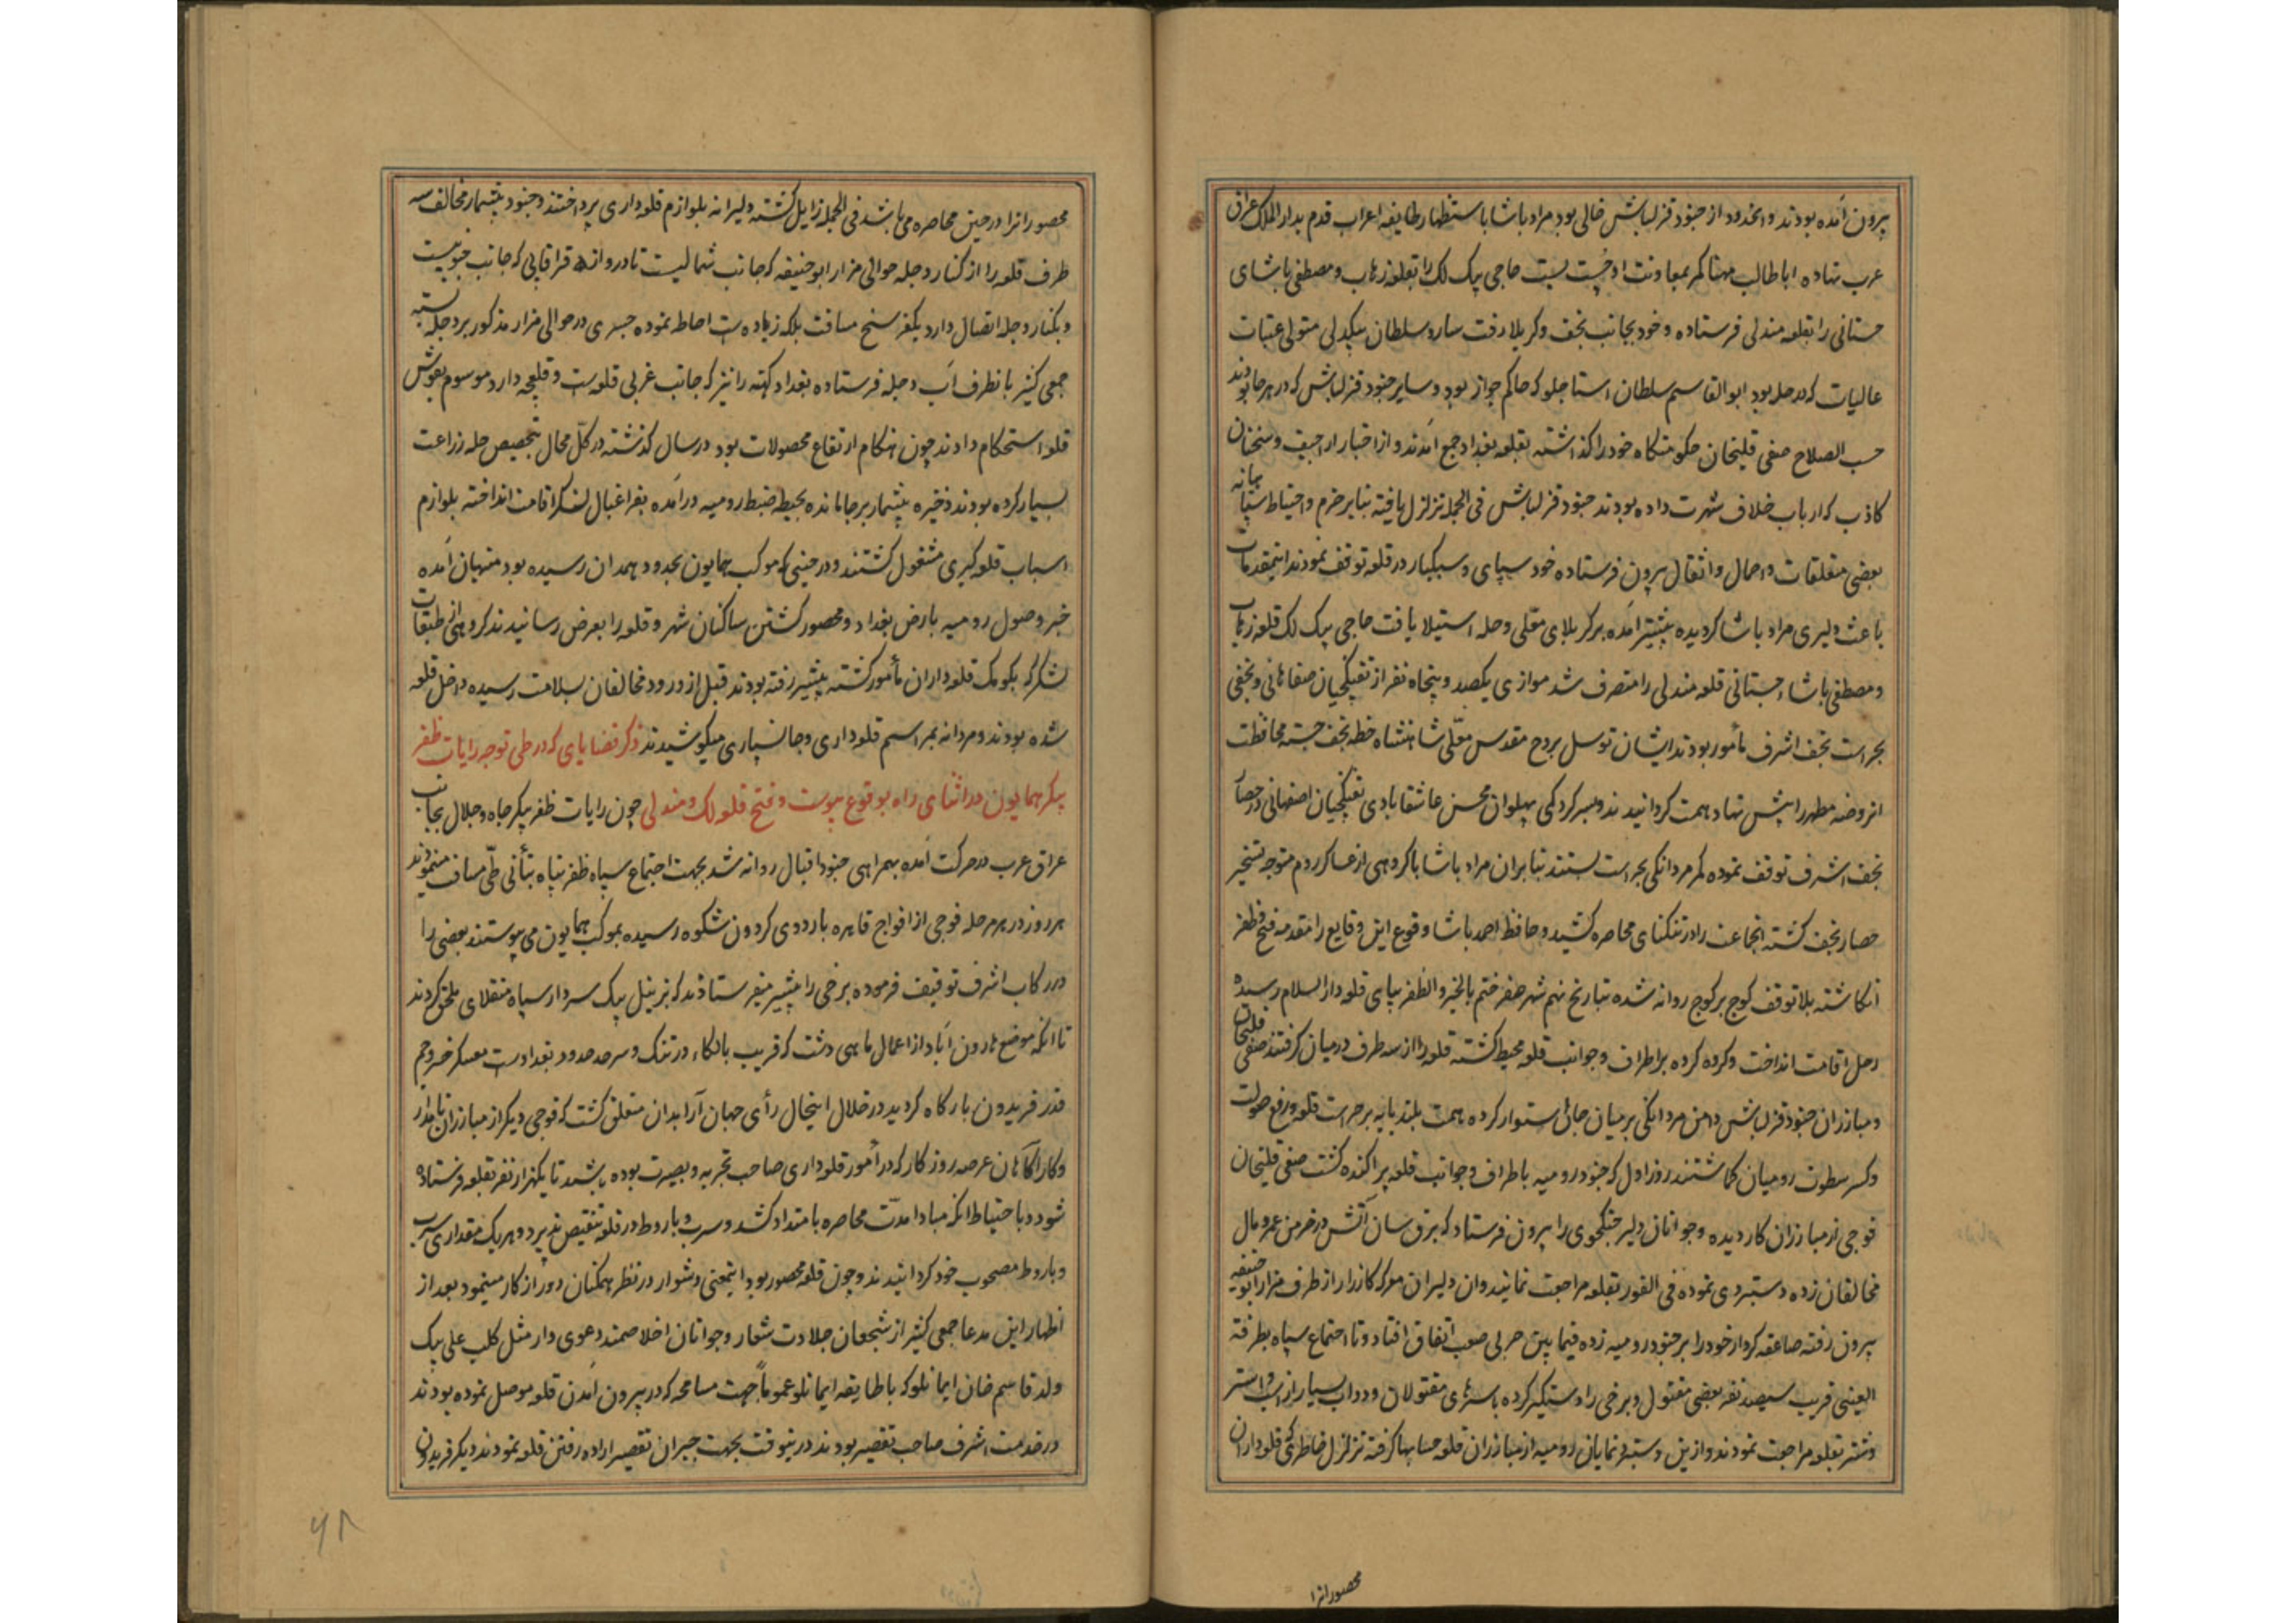 بیرون آمده بودند و انحدود از جنود قزلباش خالی بود مراد پاشا باستظهار طایفه اعراب قدم بدار الملک عراق
عرب نهاده اباطالب مهنا کمر بمعاونت او چست بست حاجی بیک لک را بقلعه زهاب و مصطفی پاشای
حستانی را بقلعه مندلی فرستاده و خود بجانب نجف و کربلا رفت سارو سلطان بیکدلی متولی عتبات
عالیات که در حله بود ابوالقاسم سلطان استاجلو که حاکم جواز بود و سایر جنود قزلباش که در هر جا بودند
حسب الصلاح صفی قلیخان حکومتگاه خود را گذاشته بقلعه بغداد جمع آمدند و از اخبار اراجیف و سخنان
کاذب که ارباب خلاف شهرت داده بودند جنود قزلباش فی الجمله تزلزل یافته بنابر حزم و احتیاط سپاهیانه
بعضی متعلقات و احمال و اثقال بیرون فرستاده خود سپاهی و سبکبار در قلعه توقف نمودند اینمقدمات
باعث دلیری مراد پاشا گردیده پیشتر آمده بر کربلای معلی و حله استیلا یافت حاجی بیک لک قلعه زهاب
و مصطفی پاشاء حستانی قلعه مندلی را متصرف شد موازی یکصد و پنجاه نفر از تفنگچیان صفاهانی و نجفی
بحراست نجف اشرف مأمور بودند ایشان توسل بروح مقدس معلّی شاهنشاه خطه نجف جسته محافظت
انروضه مطهر را پیش نهاد همت گردانیدند و بسرکردگی پهلوان محسن عاشقابادی تفنگچیان اصفهانی در حصار
نجف اشرف توقف نموده کمر مردانگی بحراست بستند بنابران مراد پاشا با گروهی از عساکر روم متوجه تسخیر
حصار نجف گشته انجماعت را در تنگنای محاصره کشید و حافظ احمد پاشا وقوع این وقایع را مقدمه فتح و ظفر
انگاشته بلا توقف کوچ بر کوچ روانه شده بتاریخ نهم شهر صفر ختم بالخیر و الظفر بپای قلعه دار السلام رسیده
رحل اقامت انداخت و گروه گروه بر اطراف و جوانب قلعه محیط گشته قلعه را از سه طرف در میان گرفتند صفی قلیخان
و مبارزان جنود قزلباش دامن مردانگی بر میان جان استوار کرده همت بلند پایه بر حراست قلعه و رفع صولت
و کسر سطوت رومیان گماشتند روز اول که جنود رومیه باطراف و جوانب قلعه پراکنده گشت صفی قلیخان
فوجی از مبارزان کار دیده و جوانان دلیر جنگجوی را بیرون فرستاد که برق سان آتش در خرمن عمر و مال
مخالفان زده دستبردی نموده فی الفور بقلعه مراجعت نمایند و ان دلیران معرکه کارزار از طرف مزار ابو حنیفه
بیرون رفته صاعقه کردار خود را بر جنود رومیه زده فیما بین حربی صعب اتفاق افتاد و تا اجتماع سپاه بطرفة
العینی قریب سیصد نفر بعضی مقتول و برخی را دستگیر کرده با سرهای مقتولان و دواب بسیار از اسب و استر
و شتر بقلعه مراجعت نمودند و ازین دستبرد نمایان رومیه از مبارزان قلعه حسابها گرفته تزلزل خاطری که قلعه داران
محصور انرا
محصور انرا در حین محاصره می باشد فی الجمله زایل گشته دلیرانه بلوازم قلعه داری پرداختند و جنود بیشمار مخالف سه
طرف قلعه را از کنار دجله حوالی مزار ابو حنیفه که جانب شمالیست تا دروازه قراقاپی که جانب جنوبیست
و بکنار دجله اتصال دارد یکفرسنخ مسافت بلکه زیاده است احاطه نموده جسری در حوالی مزار مذکور بر دجله بسته
جمعی کثیر بانطرف آب دجله فرستاده بغداد کهنه را نیز که جانب غربی قلعه است و قلعچه دارد موسوم بقوش
قلعه استحکام دادند چون هنگام ارتفاع محصولات بود در سال گذشته در کلّ محال بتخصیص حله زراعت
بسیار کرده بودند ذخیره بیشمار بر جا مانده بحیطه ضبط رومیه درآمده بفراغبال لنگر اقامت انداخته بلوازم
اسباب قلعه گیری مشغول گشتند و در حینی که موکب همایون بحدود همدان رسیده بود منهیان آمده
خبر وصول رومیه بارض بغداد و محصور گشتن ساکنان شهر و قلعه را بعرض رسانیدند گروهی از طبقات
لشکر که بکومک قلعه داران مأمور گشته پیشتر رفته بودند قبل از ورود مخالفان بسلامت رسیده داخل قلعه
شده بودند و مردانه بمراسم قلعه داری و جانسپاری میکوشیدند ذکر قضایای که در طی توجه رایات ظفر
پیکر همایون در اثنای راه بوقوع پیوست و فتح قلعه لک و مندلی چون رایات ظفر پیکر جاه و جلال بجانب
عراق عرب در حرکت آمده بهمراهی جنود اقبال روانه شد بجهت اجتماع سپاه ظفر پناه بتأنی طیّ مسافت مینمودند
هر روز در هر مرحله فوجی از افواج قاهره باردوی گردون شکوه رسیده بموکب همایون می پیوستند بعضی را
در رکاب اشرف توقیف فرموده برخی را پیشتر میفرستادند که بزینل بیک سردار سپاه منقلای ملحق گردند
تا انکه موضع هارون آباد از اعمال ماهی دشت که قریب بالکاء درتنک و سرحد حدود بغداد است معسکر خسرو جم
قدر فریدون بارگاه گردید در خلال اینحال رأی جهان آرا بدان متعلق گشت که فوجی دیگر از مبارزان نامدار
و کار آگاهان عرصه روزگار که در امور قلعه داری صاحب تجربه و بصیرت بوده باشند تا یکهزار نفر بقلعه فرستاده
شود و باحتیاط انکه مبادا مدّت محاصره بامتداد کشد و سرب و باروط در قلعه تنقیص پذیرد و هر یک مقداری سرب
و باروط مصحوب خود گردانیدند و چون قلعه محصور بود اینمعنی دشوار در نظر همگنان دور از کار مینمود بعد از
اظهار این مدعا جمعی کثیر از شجعان جلادت شعار و جوانان اخلاصمند دعوی دار مثل کلب علی بیک
ولد قاسم خان ایمانلو که با طایفه ایمانلو عموماً جهت مسامحه که در بیرون آمدن قلعه موصل نموده بودند
در خدمت اشرف صاحب تقصیر بودند درینوقت بجهت جبران تقصیر اراده رفتن قلعه نمودند دیگر فریدون
۶۸